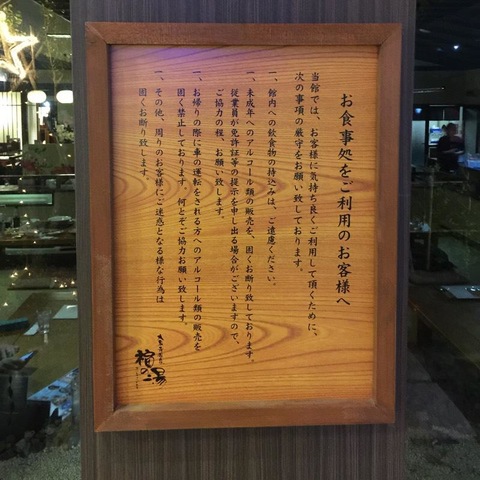 お食事処をご利用のお客様へ
当館では、お客様に気持ち良くご利用して頂くために、
次の事項の厳守をお願い致しております。
一、館内への飲食物の持込みは、ご遠慮ください。
一、未成年へのアルコール類の販売を、固くお断り致しております。
従業員が免許証等の提示を申し出る場合がございますので、
ご協力の程、お願い致します。
一、お帰りの際に車の運転をされる方へのアルコール類の販売を
固く禁止しております。何とぞご協力お願い致します。
一、その他、周りのお客様にご迷惑となる様な行為は
固くお断り致します。